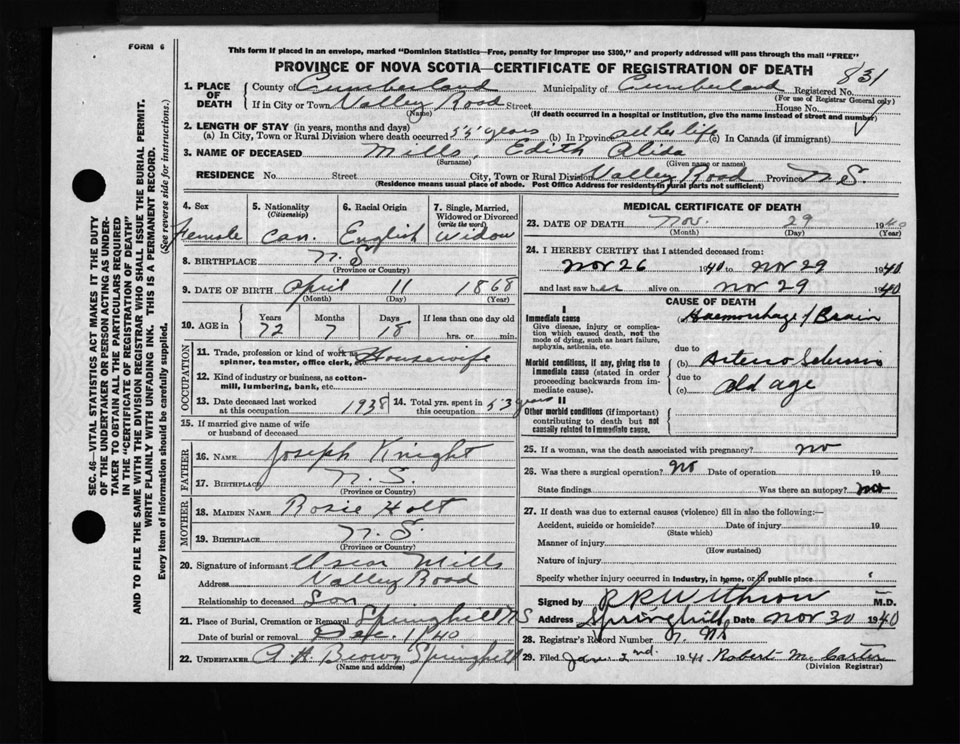 FORM 6
This form if placed in an envelope, marked "Dominion Statistics—Free, penalty for improper use $300," and properly addressed will pass through the mail "FREE"
PROVINCE OF NOVA SCOTIA—CERTIFICATE OF REGISTRATION OF DEATH
831
1. PLACE OF DEATH County of Cumberland Municipality of Cumberland Registered No.
(For use of Registrar General only)
If in City or Town Valley Road Street House No.
(Name) (If death occurred in a hospital or institution, give the name instead of street and number)
2. LENGTH OF STAY (in years, months and days)
(a) In City, Town or Rural Division where death occurred 53 years (b) In Province all her life (c) In Canada (if immigrant)
3. NAME OF DECEASED Mills, Edith Alida
(Surname) (Given name or names)
RESIDENCE No. Street City, Town or Rural Division Valley Road Province N S
(Residence means usual place of abode. Post Office Address for residents in rural parts not sufficient)
4. Sex 5. Nationality (Citizenship) 6. Racial Origin 7. Single, Married, Widowed or Divorced (write the word)
Female Can. English Widow
8. BIRTHPLACE N. S
(Province or Country)
9. DATE OF BIRTH April 11 1868
(Month) (Day) (Year)
10. AGE in Years Months Days If less than one day old
72 7 18 hrs. or min.
OCCUPATION
11. Trade, profession or kind of work as spinner, teamster, office clerk, etc. Housewife
12. Kind of industry or business, as cotton-mill, lumbering, bank, etc.
13. Date deceased last worked at this occupation 1938 14. Total yrs. spent in this occupation 53 years
15. If married give name of wife or husband of deceased
FATHER
16. NAME Joseph Knight
17. BIRTHPLACE N. S.
(Province or Country)
MOTHER
18. MAIDEN NAME Rosie Holt
19. BIRTHPLACE N. S.
(Province or Country)
20. Signature of informant Mills
Address Valley Road
Relationship to deceased Son
21. Place of Burial, Cremation or Removal Springhill NS
Date of burial or removal Dec. 1 1940
22. UNDERTAKER A. H Brown Springhill
(Name and address)
MEDICAL CERTIFICATE OF DEATH
23. DATE OF DEATH Nov. 29 1940
(Month) (Day) (Year)
24. I HEREBY CERTIFY that I attended deceased from:
Nov 26 1940 to Nov 29 1940
and last saw her alive on Nov 29 1940
CAUSE OF DEATH
I
Immediate cause Haemorrhage / Brain
Give disease, injury or complication which caused death, not the mode of dying, such as heart failure, asphyxia, asthenia, etc.
due to
Morbid conditions, if any, giving rise to immediate cause (stated in order proceeding backwards from immediate cause).
(b) Arterio
due to
(c) Old age
II
Other morbid conditions (if important) contributing to death but not causally related to immediate cause.
25. If a woman, was the death associated with pregnancy? no
26. Was there a surgical operation? no Date of operation 19
State findings Was there an autopsy? no
27. If death was due to external causes (violence) fill in also the following:—
Accident, suicide or homicide? Date of injury 19
(State which)
Manner of injury
(How sustained)
Nature of injury
Specify whether injury occurred in industry, in home, or in public place
Signed by Withrow M.D.
Address Springhill Date Nov 30 1940
28. Registrar's Record Number
29. Filed Jan. 2nd. 1941 Robert M. Carter
(Division Registrar)
SEC. 46—VITAL STATISTICS ACT MAKES IT THE DUTY
OF THE UNDERTAKER OR PERSON ACTING AS UNDER-
TAKER TO OBTAIN ALL THE PARTICULARS REQUIRED
IN THE "CERTIFICATE OF REGISTRATION OF DEATH"
AND TO FILE THE SAME WITH THE DIVISION REGISTRAR WHO SHALL ISSUE THE BURIAL PERMIT.
WRITE PLAINLY WITH UNFADING INK. THIS IS A PERMANENT RECORD.
Every item of information should be carefully supplied. (See reverse side for instructions.)